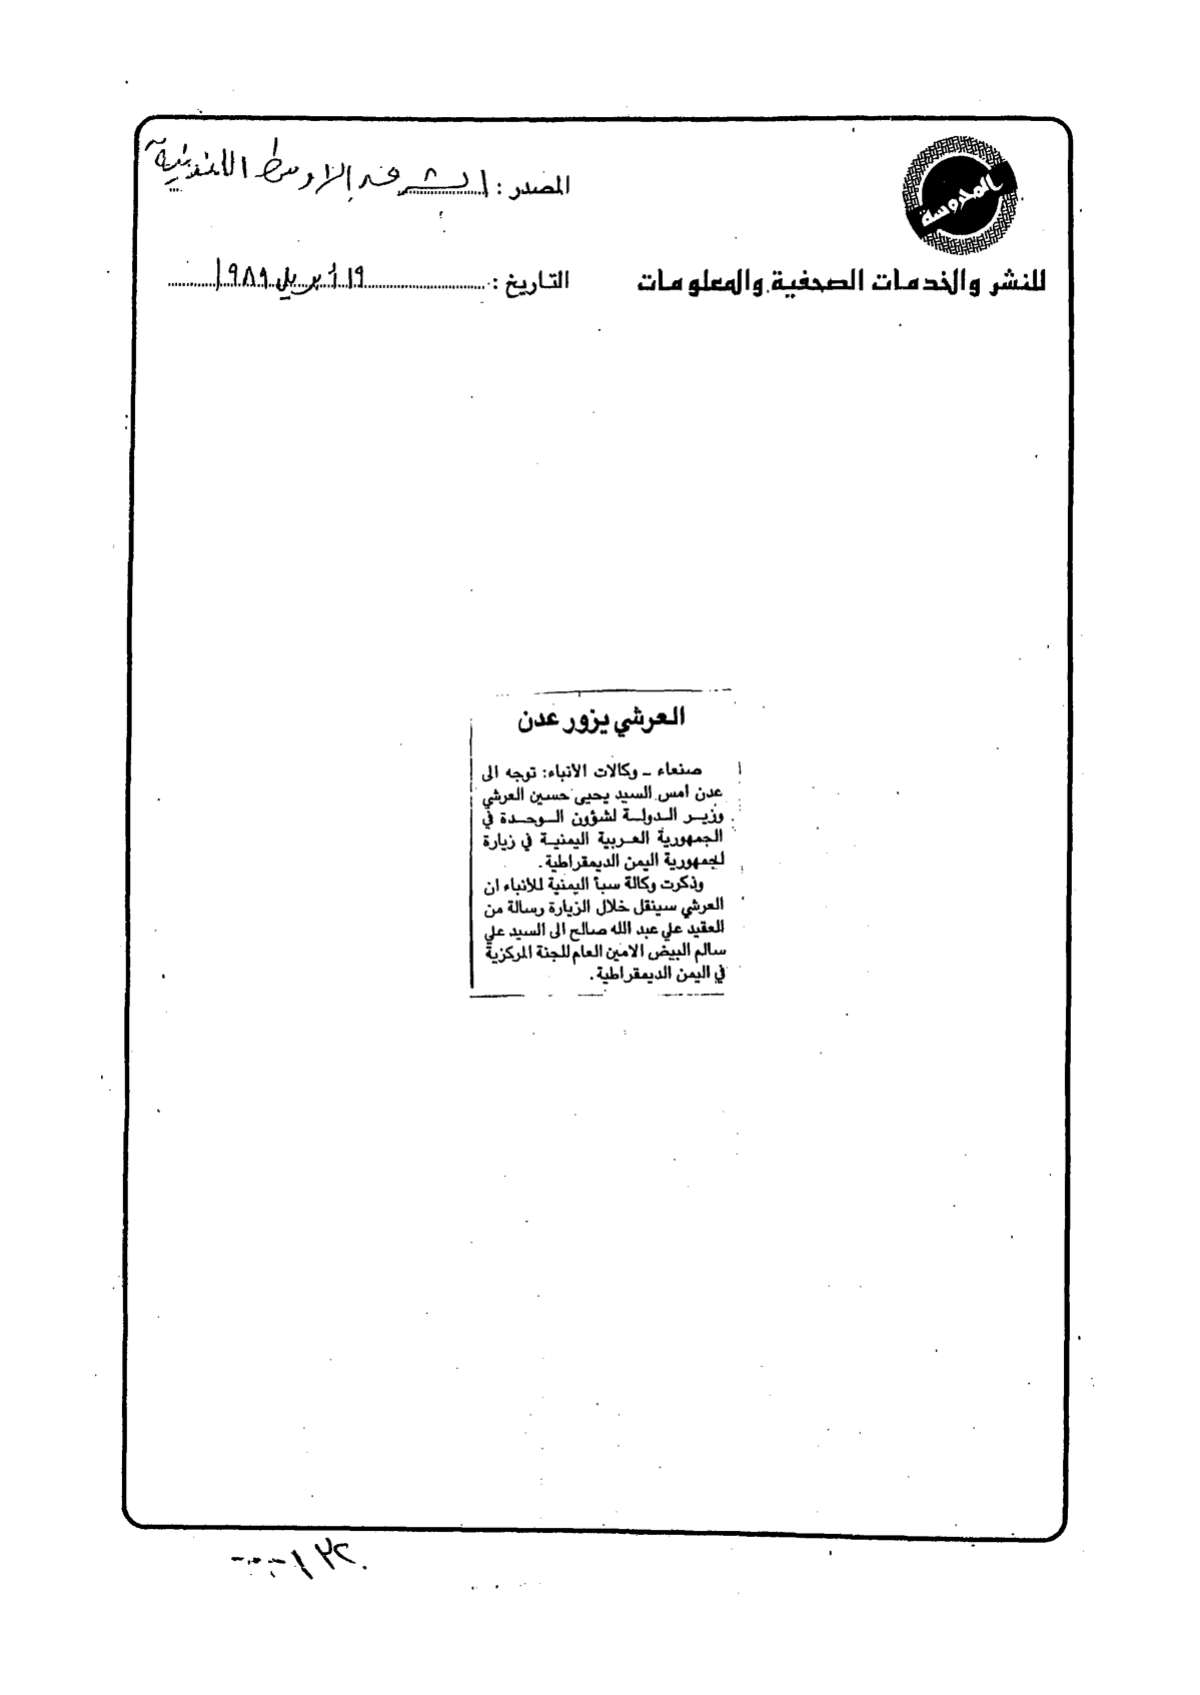 المصدر : الشرق الاوسط اللندنية
المحروسة
التاريخ : ١٩ ابريل ١٩٨٩
للنشر والخدمات الصحفية والمعلومات
العرشي يزور عدن
صنعاء - وكالات الأنباء: توجه الى
عدن امس السيد يحيى حسين العرشي
وزير الدولة لشؤون الوحدة في
الجمهورية العربية اليمنية في زيارة
لجمهورية اليمن الديمقراطية.
وذكرت وكالة سبأ اليمنية للأنباء ان
العرشي سينقل خلال الزيارة رسالة من
العقيد علي عبد الله صالح الى السيد علي
سالم البيض الامين العام للجنة المركزية
في اليمن الديمقراطية.